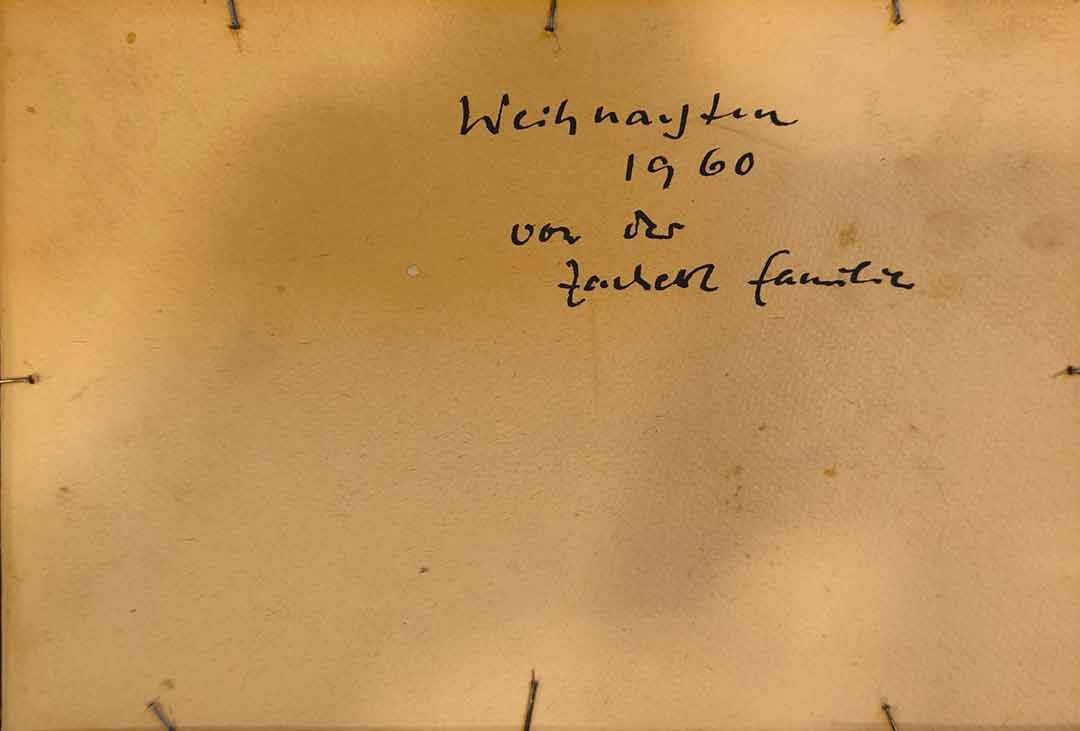 Weihnachten
1960
von der
familie